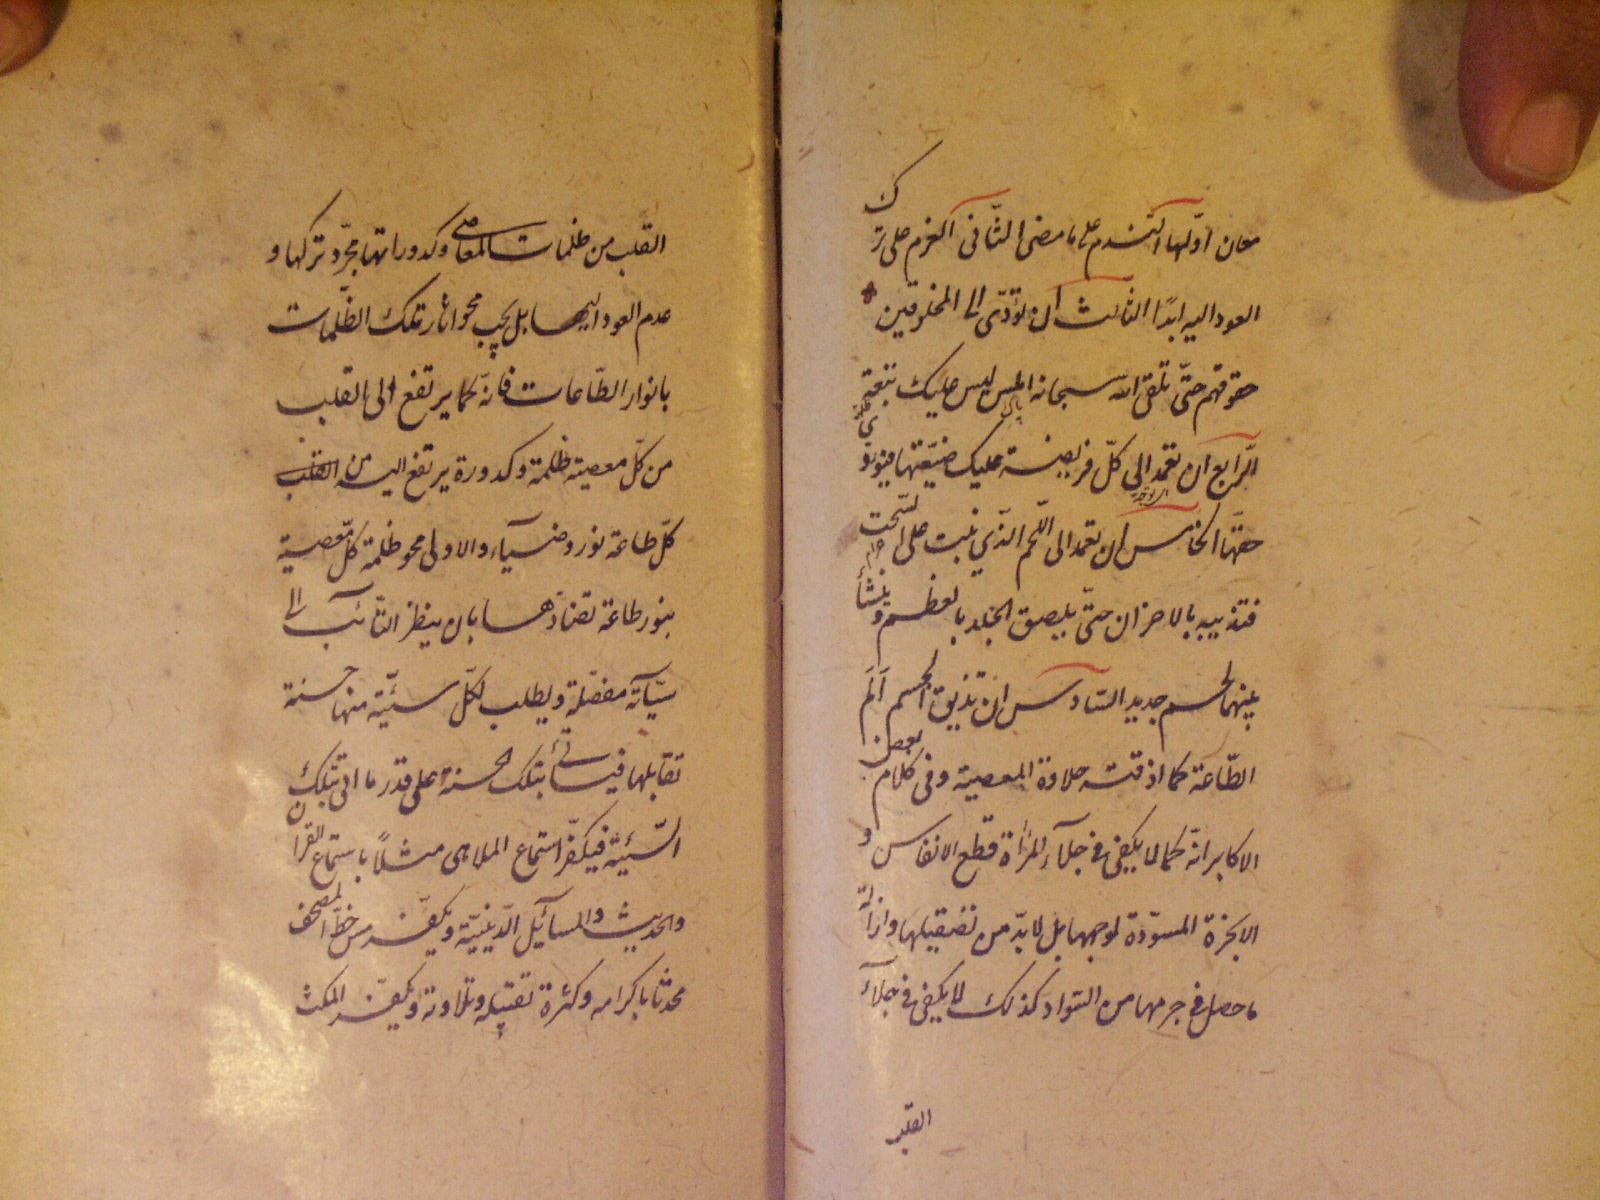 معان اوّلها النّدم على ما مضى الثّانى العزم على ترك
العود اليه ابدًا الثّالث ان تؤدّى الى المخلوقين
حقوقهم حتّى تلقى اللّه سبحانه املس ليس عليك تبعة
الرّابع ان تعمد الى كلّ فريضة عليك ضيّعتها فتؤدّى
حقّها الخامس ان تعمد الى اللّحم الّذي نبت على السّحت
فتذيبه بالاحزان حتّى يلصق الجلد بالعظم وينشأ
بينهما لحم جديد السّادس ان تذيق الجسم اَلَم
الطّاعة كما اذقته حلاوة المعصية وفى كلام بعض
الاكابر انّه كما لا يكفى فى جلآء المرأة قطع الانفاس و
الابخرة المسوّدة لوجهها بل لا بدّ من تصقيلها وازالة
ما حصل فى جرمها من السّواد كذلك لا يكفى فى جلآء
القلب
القلب من ظلمات المعاصى وكدوراتها مجرّد تركها و
عدم العود اليها بل يجب محو اثار تلك الظّلمات
بانوار الطّاعات فانّه كما يرتفع الى القلب
من كلّ معصية ظلمة وكدورة يرتفع اليه من القلب
كلّ طاعة نور وضيآء والاولى محو ظلمة كلّ معصية
بنور طاعة تضادّها بان ينظر التّائب الى
سيّآته مفصّلة ويطلب لكلّ سيّئة منها حسنة
تقابلها فيأتى بتلك الحسنة على قدر ما اتى بتلك
السّيّئة فيكفّر استماع الملاهى مثلًا باستماع القران
والحديث والمسآئل الدّينيّة ويكفّر مس خطّ المصحف
محدثا باكرامه وكثرة تقبيله وتلاوته ويكفّر المكث